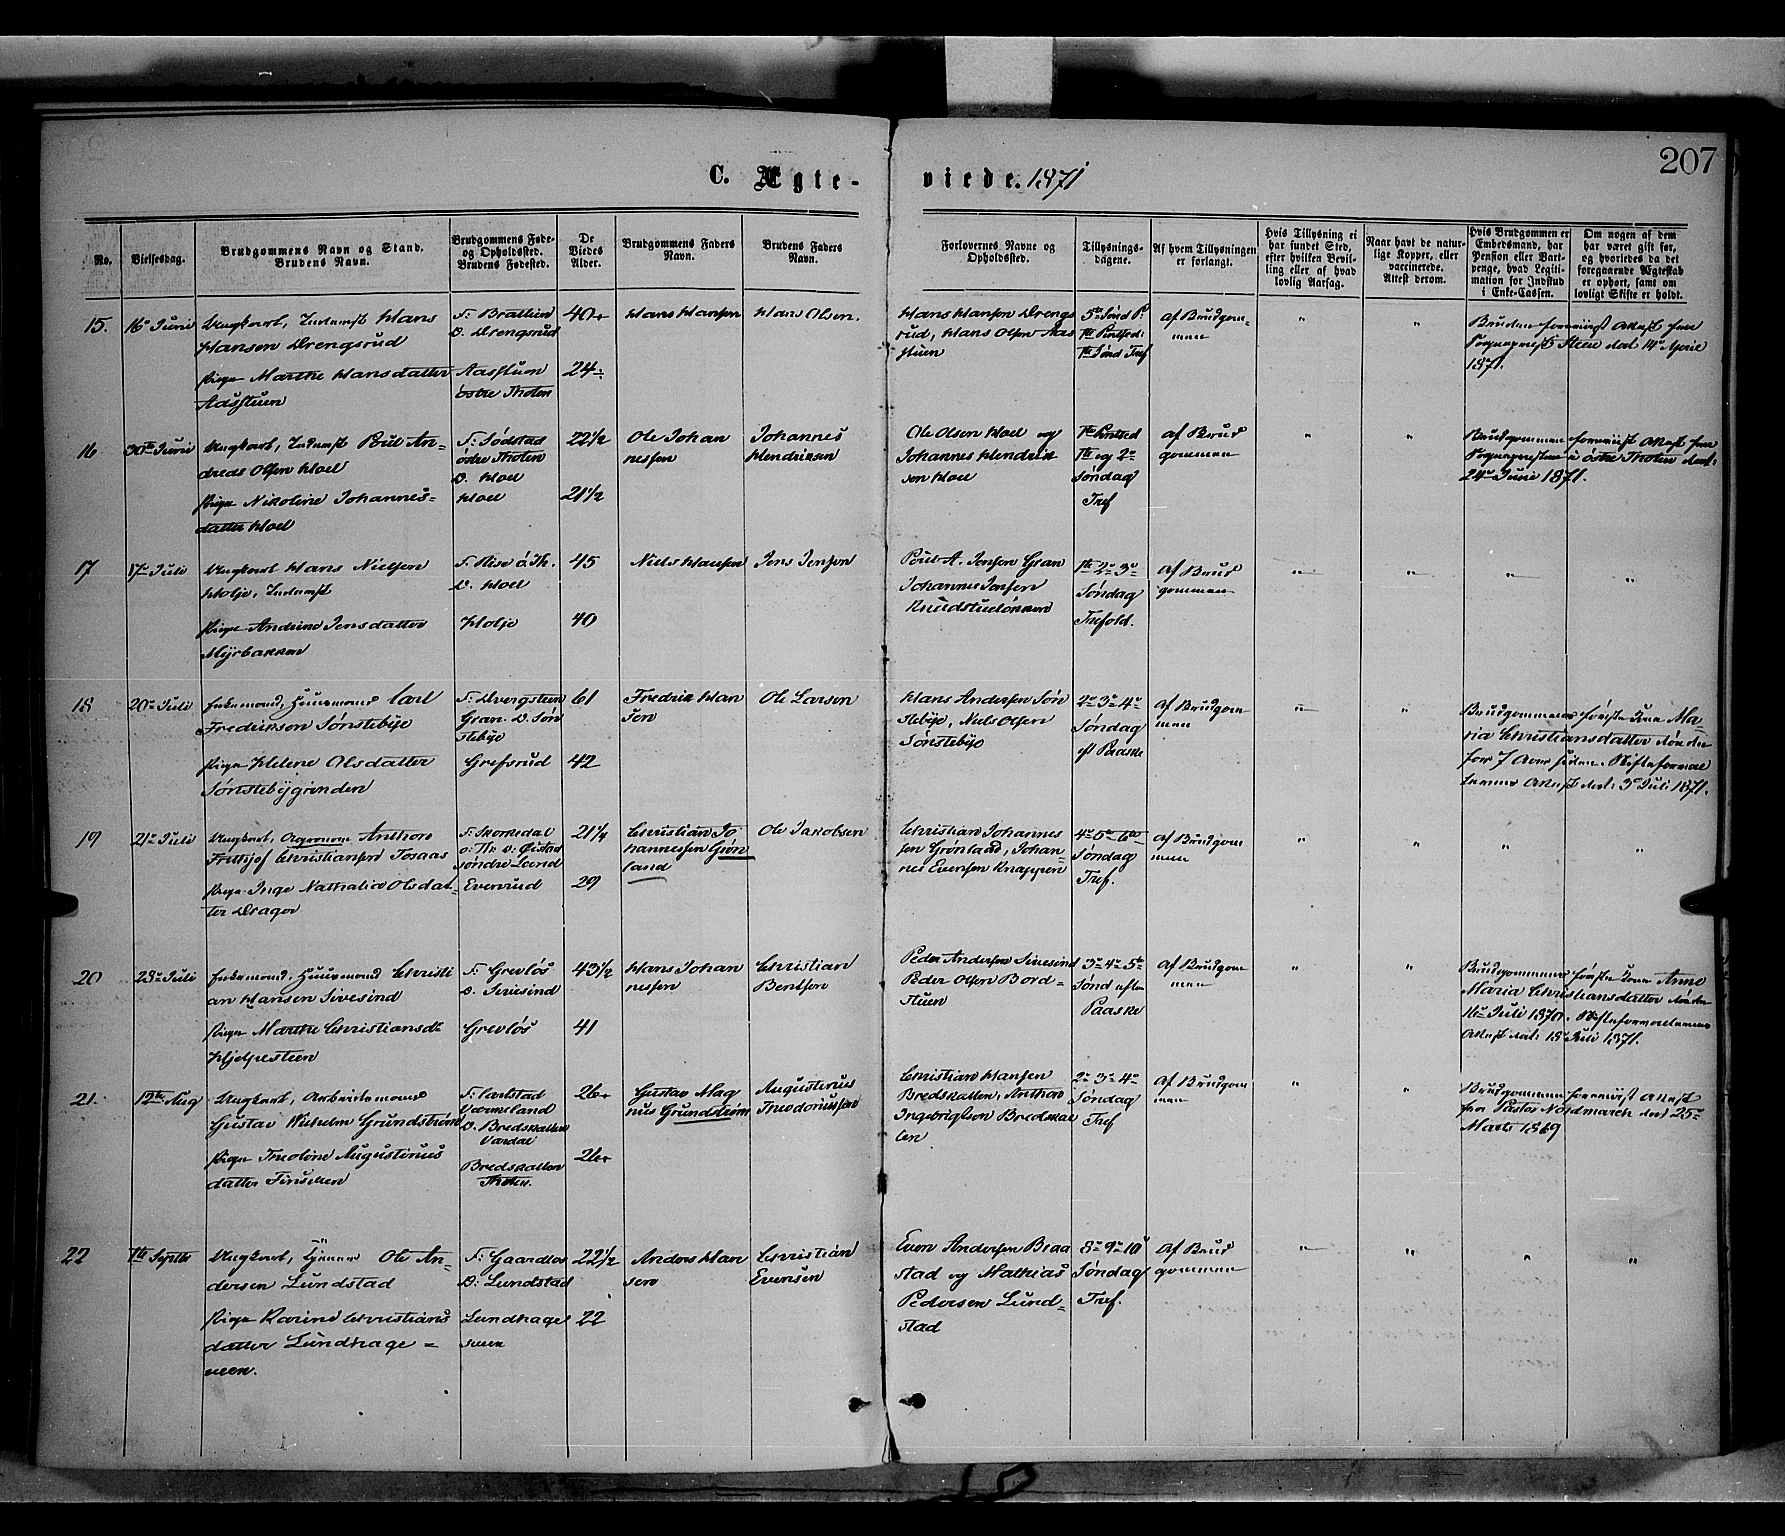 207
C. Ægte-
viede. 1871
No.
Vielsesdag.
Brudgommens Navn og Stand.
Brudens Navn.
Brudgommens Føde-
og Opholdssted.
Brudens Fødested.
De
Viedes
Alder.
Brudgommens Faders
Navn.
Brudens Faders
Navn.
Forlovernes Navne og
Opholdssted.
Tillysnings-
dagene.
Af hvem Tillysningen
er forlangt.
Hvis Tillysning ei
har fundet Sted,
efter hvilken Bevil-
ling eller af hvad
lovlig Aarsag.
Naar havt de natur-
lige Kopper, eller
vaccinerede.
Attest derom.
Hvis Brudgommen er
Embedsmand, har
Pension eller Vart-
penge, hvad Legiti-
mation for Indskud
i Enke-Cassen.
Om nogen af dem
har været gift før,
og hvorledes da det
foregaaende Ægteskab
er ophørt, samt om
lovligt Skifte er holdt.
15.
16de Juni
Ungkarl, Inderst Hans
Hansen Drengsrud
Pige Marthe Hansdatter
Aasstuen
F: Brathien
O. Drengsrud
Aasstuen
østre Thoten
40
24
Hans Hansen
Hans Olsen.
Hans Hansen Drengs
rud, Hans Olsen Aas
stuen
5te Sønd P.
1ste Pintsed:
1ste Sønd Tref
Af Brudgom-
men
"
"
Bruden forevist Attest fra
Sognepræst Steen dat 14de April
1871.
16
30te Juni
Ungkarl, Inderst Poul An-
dreas Olsen Hoel
Pige Nikoline Johannes-
datter Hoel
F: Sødstad
østre Thoten
O. Hoel
Hoel
22 1/2
21 1/2
Ole Johan
nessen
Johannes
Hendriksen
Ole Olsen Hoel og
Johannes Hendrik
sen Hoel
1ste Pintsed
1ste og 2den
søndag
Tref
Af Brud
gommen
"
"
Brudgommen forevist Attest fra
Sognepresten i østre Thoten dat:
24de Juni 1871.
17
17de Juli
Ungkarl Hans Nielsen
Holje, Inderst
Pige Andrine Jensdatter
Myrbakken
F. Rise ø. Th.
O. Hoel
Holje
45
40
Niels Hansen
Jens Jensen
Poul A. Jensen Gran
Johannes Jensen
Knudstueløkken
1ste 2den 3die
Søndag
Trefold.
Af Brud
gommen
"
"
"
"
18
20de Juli
Enkemand, Huusmand Carl
Fredriksen Sønstebye
Pige Helene Olsdatter
Sønstebygrinden
F: Dvergsteen
Gran. O. Søn
stebye
Grefsrud
61
42
Fredrik Han
sen
Ole Larsen
Hans Andersen Søn
stebye, Niels Olsen
Sønstebye
2den 3die 4de
Søndag
ef Paaske
Af Brudgom
men
"
"
Brudgommens første Kone Ma-
ria Christiansdatter døde
for 7 Aar siden. Skifteforval
terens Attest dat: 3die Juli 1871.
19
21de Juli
Ungkarl, Agronom Anthon
Frithjof Christiansen Tosaas
Pige Inge Nathalia Olsdat-
ter Drager
F: Skorkedal
ø: Th. O: Øistad
søndre Land
Evenrud
21 1/4
29
Christian Jo
hannessen Grøn
land
Ole Jakobsen
Christian Johannes
sen Grønland, Johan-
nes Evensen Knappen
4de 5te 6te
Søndag
Tref.
Af Brudgom
men
"
"
"
"
20
23de Juli
Enkemand, Huusmand Christi
an Hansen Sivesind
Pige Marthe Christiansd
Hjelpesteen
F: Grevløs
O. Sivesind
Grevløs
43 1/2
41
Hans Johan
nessen
Christian
Bentsen
Peder Andersen Sivesind
Peder Olsen Bord-
stuen
3die 4de 5te
Sønd efter
Paaske
Af Brudgom
men
"
"
Brudgommens første Kone Anne
Maria Christiansdatter døde
16de Juli 1870. Skifteforvalterens
Attest dat: 18de Juli 1871.
21.
12te Aug
Ungkarl, Arbeidsmand
Gustav Wilhelm Grundstrøm
Pige Theoline Augustinus
datter Finstuen
F: Carlstad
Vermeland
O. Bredskallen
Vardal
Bredskallen
Thoten.
26
26
Gustav Mag
nus Grundstrøm
Augustinus
Theodoriussen
Christian Hansen
Bredskallen, Anthon
Ingebrigtsen Bredskal
len
2den 3die 4de
Søndag
Tref
Af Brudgom
men
"
"
Brudgommen forevist Attest
fra Pastor Nordmarch dat 25de
Marts 1869
22
1ste Septbr
Ungkarl, Ole An-
dersen Lundstad
Pige Karine Christians
datter Lundhage-
neen.
F: Gaardlos
O: Lundstad
Lundhage
neen
22 1/2
22
Anders Han
sen
Christian
Evensen
Even Andersen Braa
stad og Mathias
Pedersen Lund-
stad
8de 9de 10de
Søndag
Tref.
Af Brud
gommen
"
"
"
"